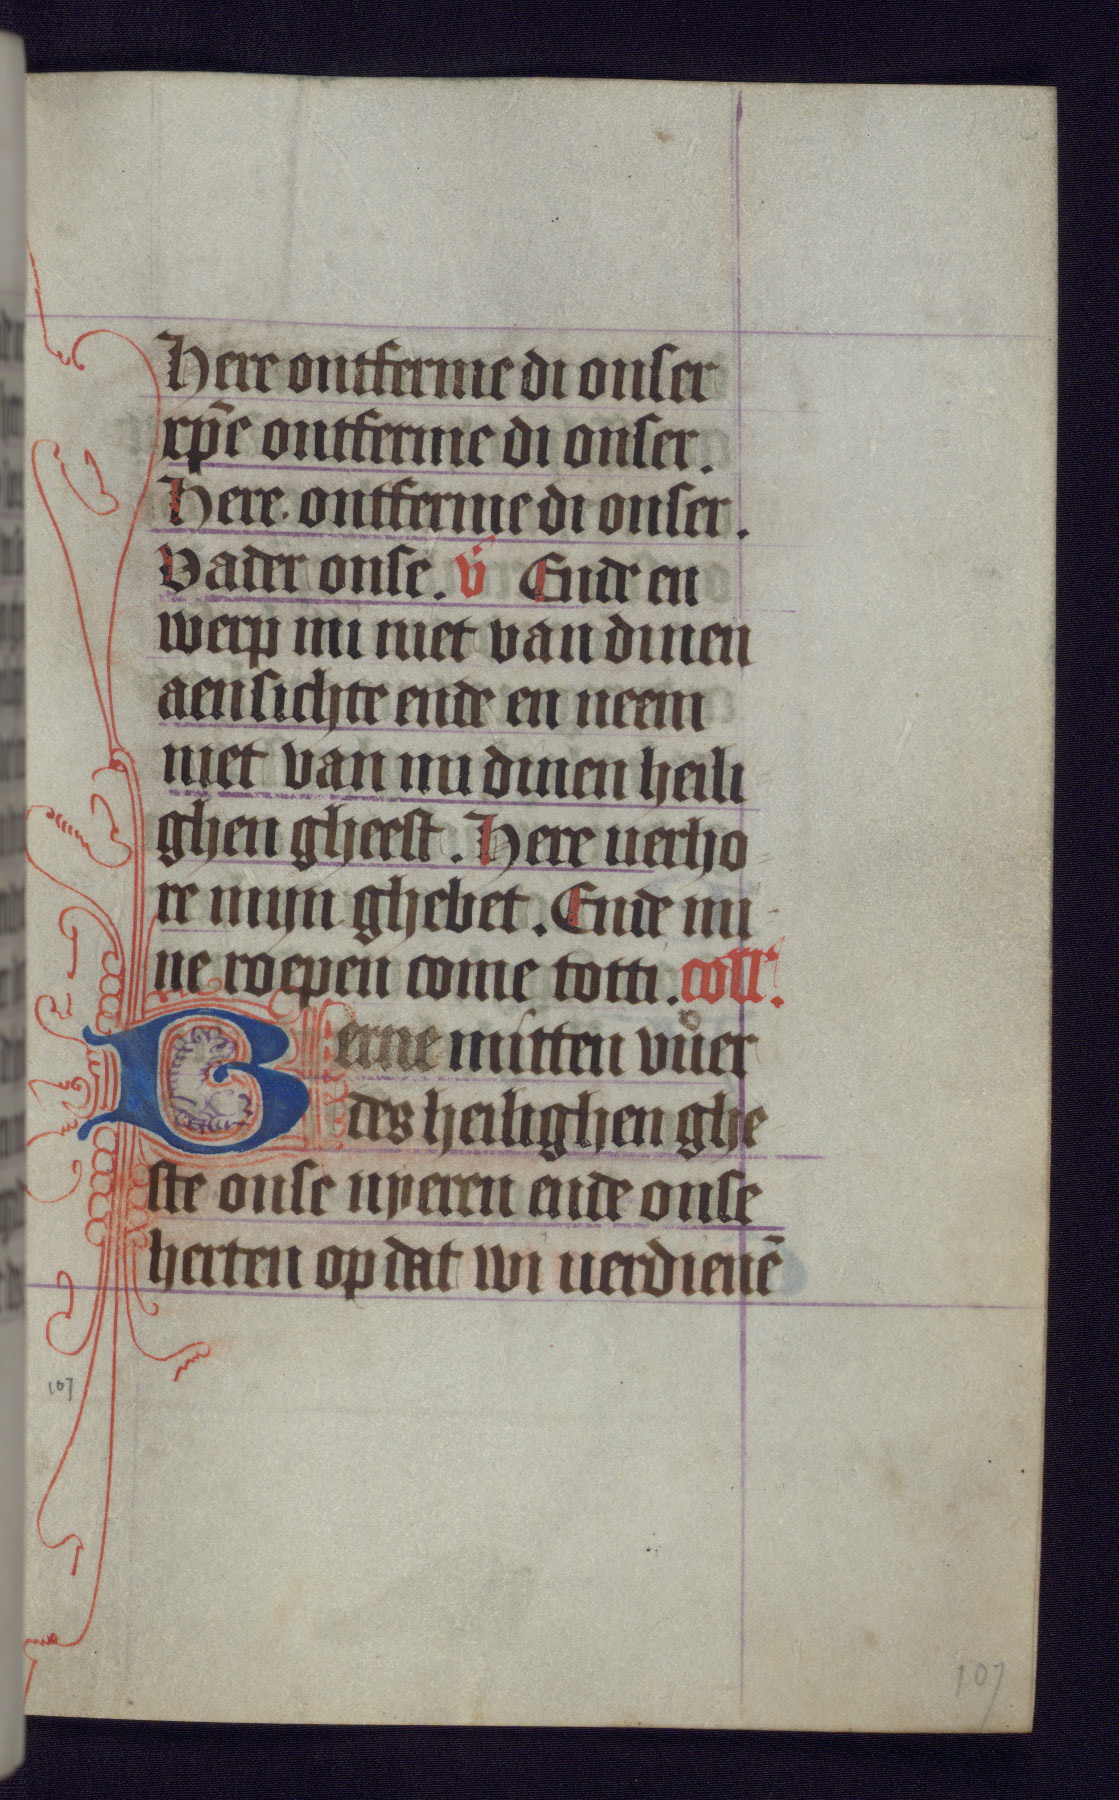 Here ontferme di onser
xp̄e ontferme di onser.
Here ontferme di onser.
Vader onse. v̄ Ende en
werp mi niet van dinen
aensichte ende en neem
niet van mi dinen heili
ghen gheest. Here verho
re mijn ghebet. Ende mi
ne roepen come totti. coll'.
Berne mitten vůer
des heilighen ghe
ste onse nyeren ende onse
herten op dat wi verdienē
107
107